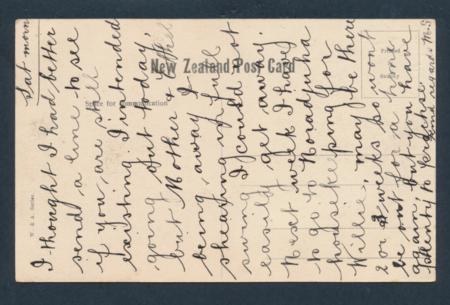 Sat morn
I thought I had better
send a line to see
if you are still
existing. I intended
going out today,
but Mother &
being away &
shearing in full
swing I could not
easily get away.
Next week I have
to go to Noradjuha
housekeeping for
Willie, may be there
2 or 3 weeks so won't
be out for a
again, but you have
plenty to
Kind regards M.S
New Zealand Post Card
Space for Communication
Printed
W. & A. Series.